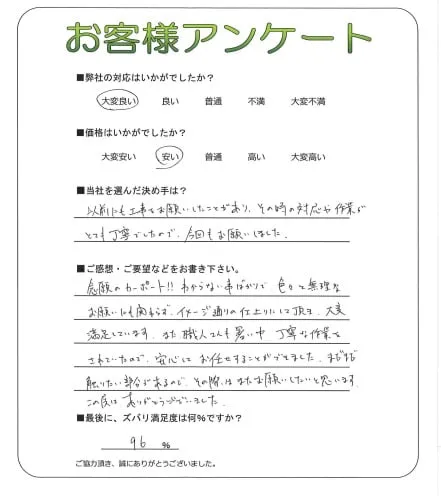 お客様アンケート
■弊社の対応はいかがでしたか?
大変良い 良い 普通 不満 大変不満
■価格はいかがでしたか?
大変安い 安い 普通 高い 大変高い
■当社を選んだ決め手は?
以前にも工事をお願いしたことがあり、その時の対応や作業が
とても丁寧でしたので、今回もお願いしました。
■ご感想・ご要望などをお書き下さい。
念願のカーポート!! わからない事ばかりで 色々と無理な
お願いにも関わらず、イメージ通りの仕上りにして頂き、大変
満足しています。また職人さんも暑い中 丁寧な作業を
されていたので、安心してお任せすることができました。まだまだ
触りたい部分があるので、その際はまたお願いしたいと思います。
この度はありがとうございました。
■最後に、ズバリ満足度は何%ですか?
96 %
ご協力頂き、誠にありがとうございました。